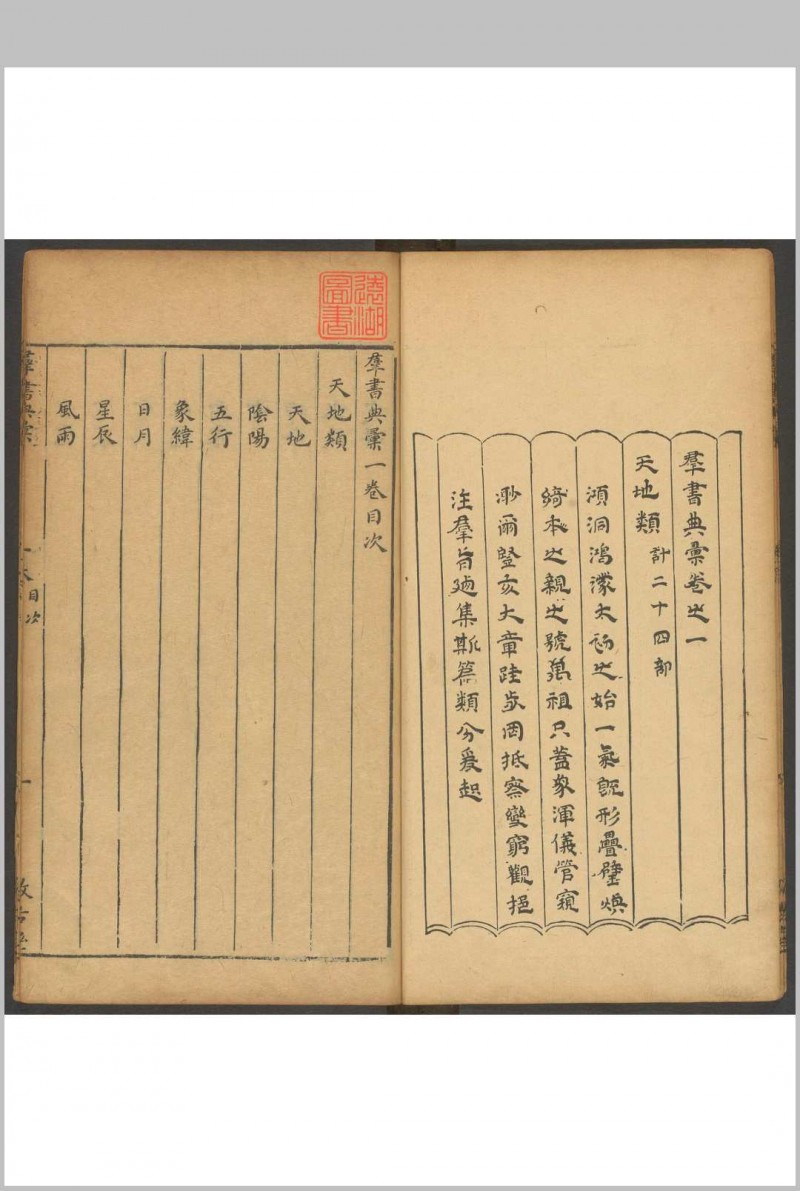 羣書典彙卷之一
天地類 計二十四部
澒洞鴻濛太初之始一氣旣形疊璧煥
綺本之親之號萬祖只蓋象渾儀管窺
渺爾豎亥大章跬步罔抵察變窮觀挹
注羣旨廼集斯篇類分爰起
遠湖圖書
羣書典彙一卷目次
天地類
天地
陰陽
五行
象緯
日月
星辰
風雨
羣書典彙
目次
一